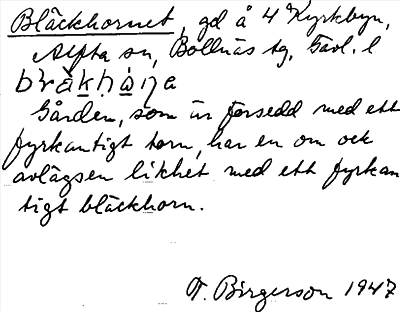 Bläckhornet, gd å 4 Kyrkbyn,
Alfta sn, Bollnäs tg, Gävl. l
Gården, som är försedd med ett
fyrkantigt torn, har en om ock
avlägsen likhet med ett fyrkan
tigt bläckhorn.
T. Birgerson 1947